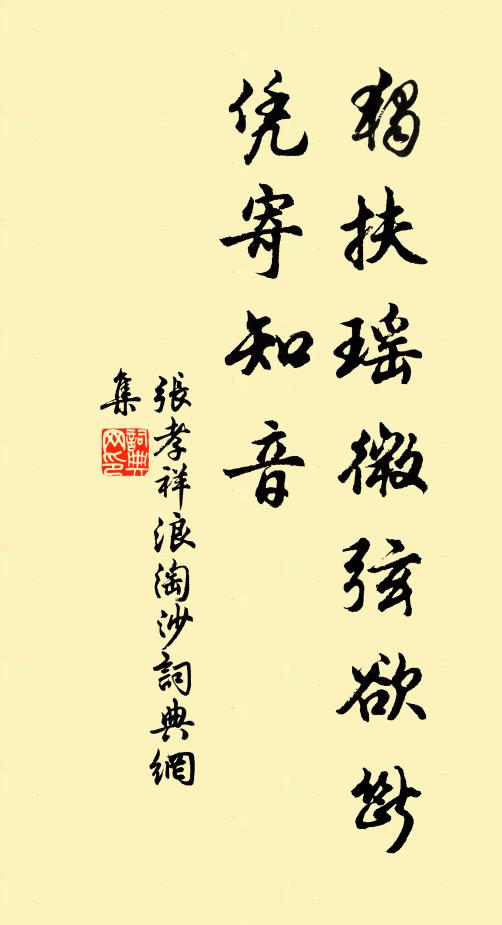 獨扶瑶微弦欲斷
凭寄知音
張孝祥浪淘沙詞典網
集
詞典
网印